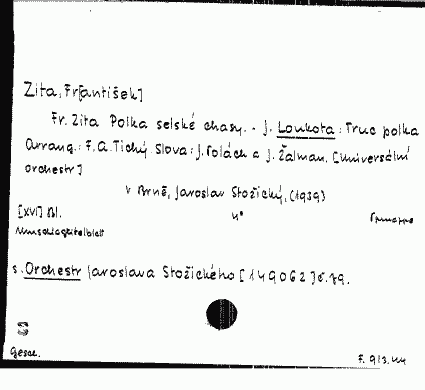 Zita, Fr[antišek]
Fr. Zita Polka selské chasy. - J. Loukota: Truc polka
Arrang.: F. A. Tichý. Slova: J. Polách a J. Žalman. [Universální
orchestr]
V Brně, Jaroslav Stožický, (1939)
[XVI] Bl. 4°
Umschlagtitelblatt
s. Orchestr Jaroslava Stožického [149062] č. 79.
Gesch. F. 913.44